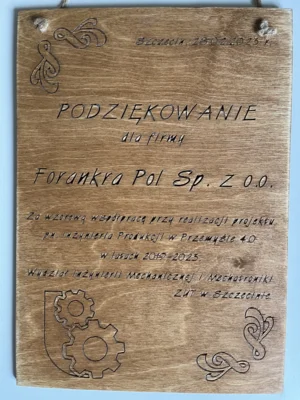 Szczecin, 2023 r.
PODZIĘKOWANIE
dla firmy
Forankra Pol Sp. z o.o.
Za wzorową współpracę przy realizacji projektu
pn. Inżynieria Produkcji w Przemyśle 4.0
w latach 2019-2023
Wydział Inżynierii Mechanicznej i Mechatroniki
ZUT w Szczecinie